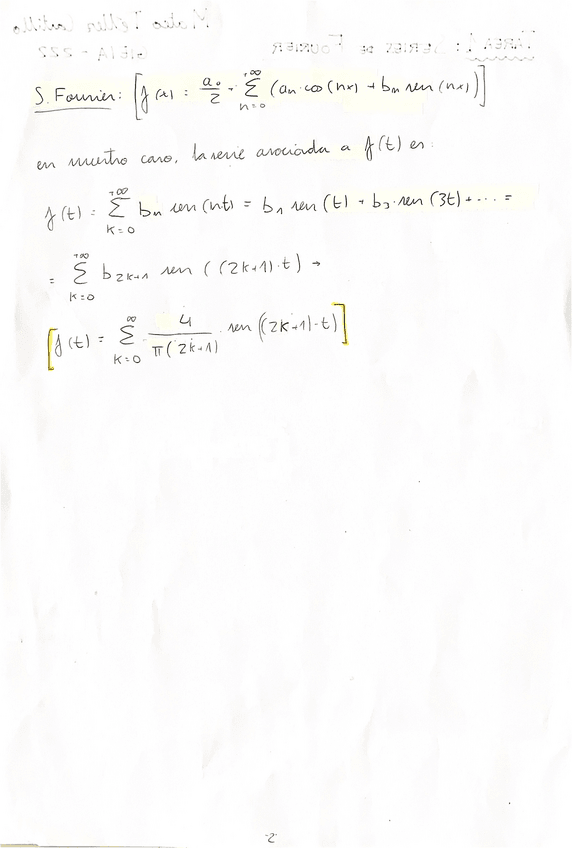 S. Fourier: [f(x) = a₀/2 + +∞ Σ n=0 (aₙ·cos(nx) + bₙ sen(nx))]
en nuestro caso, la serie asociada a f(t) es:
f(t) = +∞ Σ k=0 bₙ sen(nt) = b₁ sen(t) + b₃·sen(3t) + ··· =
= +∞ Σ k=0 b₂ₖ₊₁ sen((2k+1)·t) →
[f(t) = ∞ Σ k=0 4/π(2k+1) · sen((2k+1)·t)]
-2-